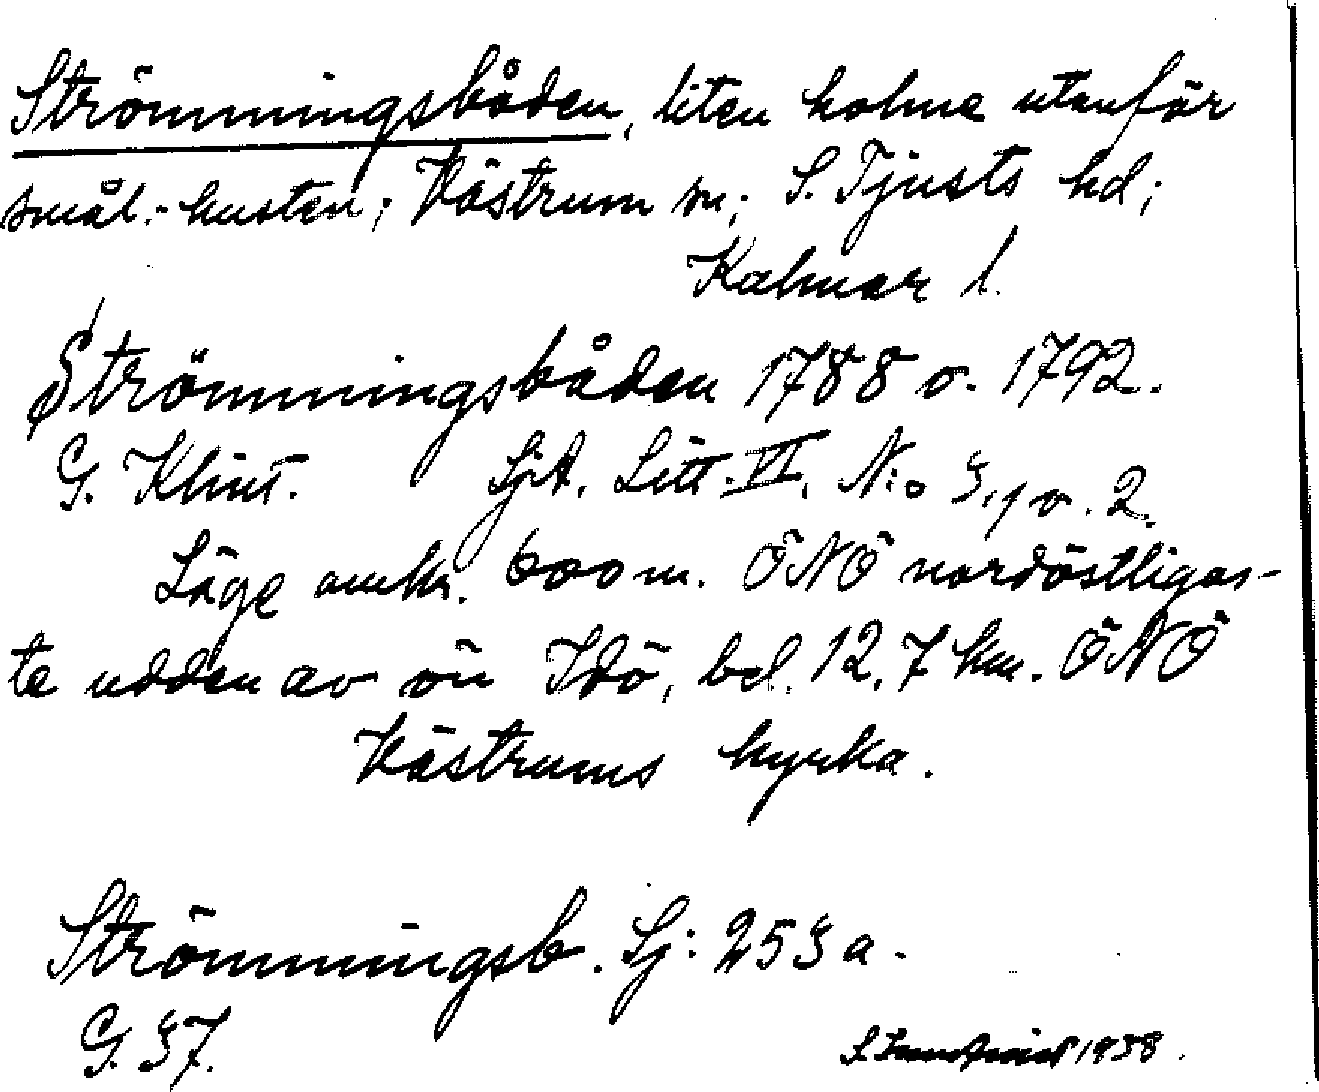 Strömmingsbåden, liten holme utanför
smål.-kusten; Västrum sn; S. Tjusts hd;
Kalmar l.
Strömmingsbåden 1788 o. 1792.
G. Klint. SjA. Litt. VI. N:o 3,1 o. 2.
Läge omkr. 600 m. ÖNÖ nordöstligas-
te udden av ön Idö, bel. 12,7 km. ÖNÖ
Västrums kyrka.
Strömmingsb. Sj: 253 a.
G. 37.
1938.